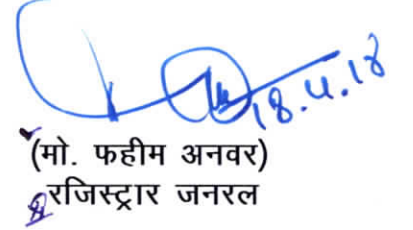 18.4.18
(मो. फहीम अनवर)
रजिस्ट्रार जनरल